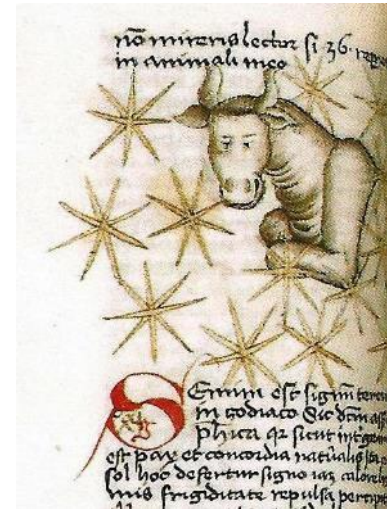 nō mireris lector si .36. repe
in animali meo
Gemini est signū terciu
in zodiaco Sic dcm̄ ass
phica qz sicut int gem
est pax et concordia natūalis ita
sol hoc defertur signo iaz calore
mis frigiditate repulsa percipit